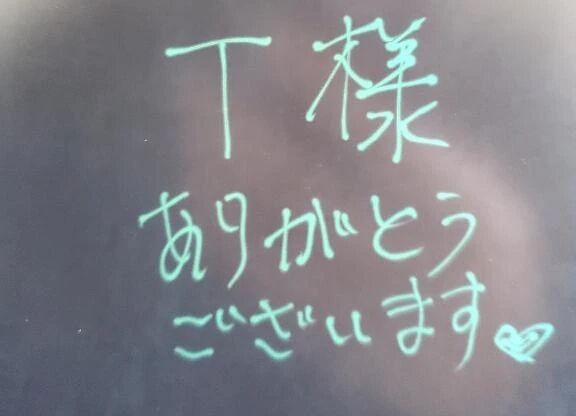 T様
ありがとう
ございます♡